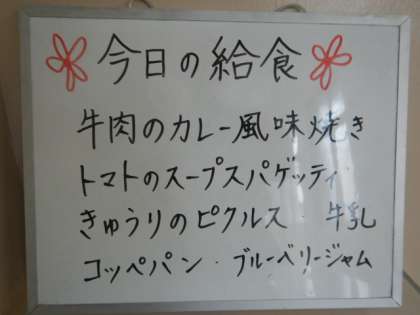 今日の給食
牛肉のカレー風味焼き
トマトのスープスパゲッティ
きゅうりのピクルス・牛乳
コッペパン・ブルーベリージャム